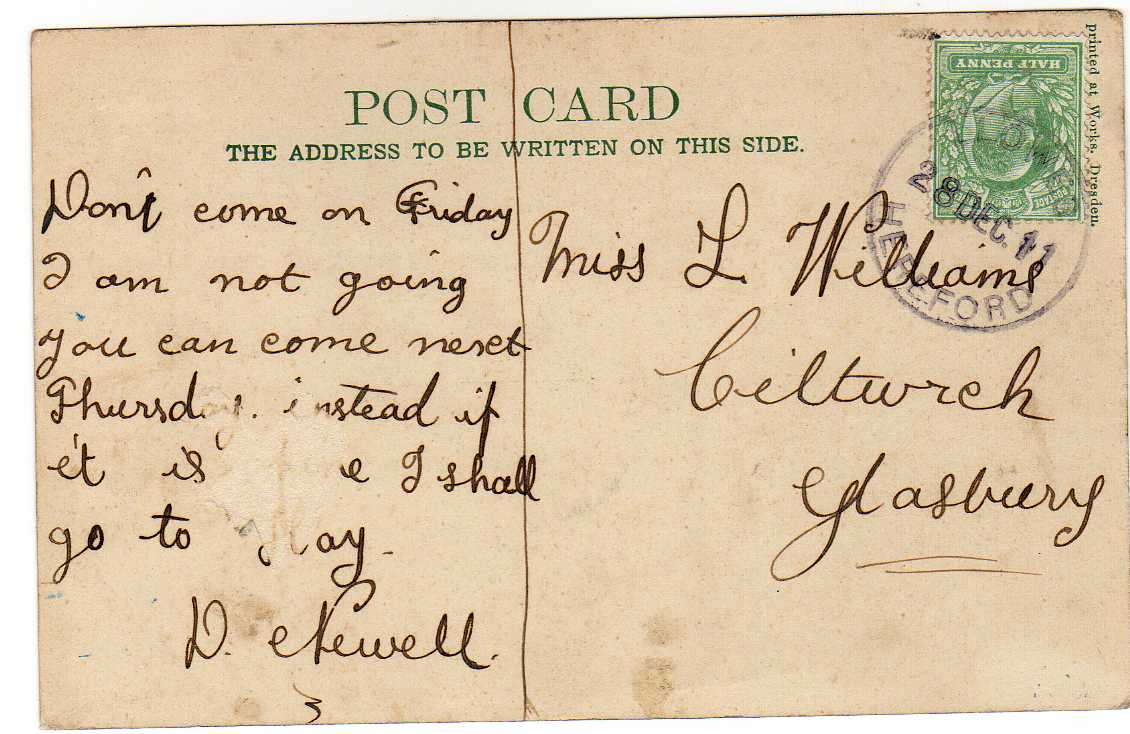 POST CARD
THE ADDRESS TO BE WRITTEN ON THIS SIDE.
printed at Works, Dresden.
HALF PENNY
28 DEC. 11
HEREFORD
Don't come on Friday
I am not going
you can come next
Thursday. instead if
it is I shall
go to Hay.
D. Newell.
Miss L Williams
Ciltwrch
Glasbury